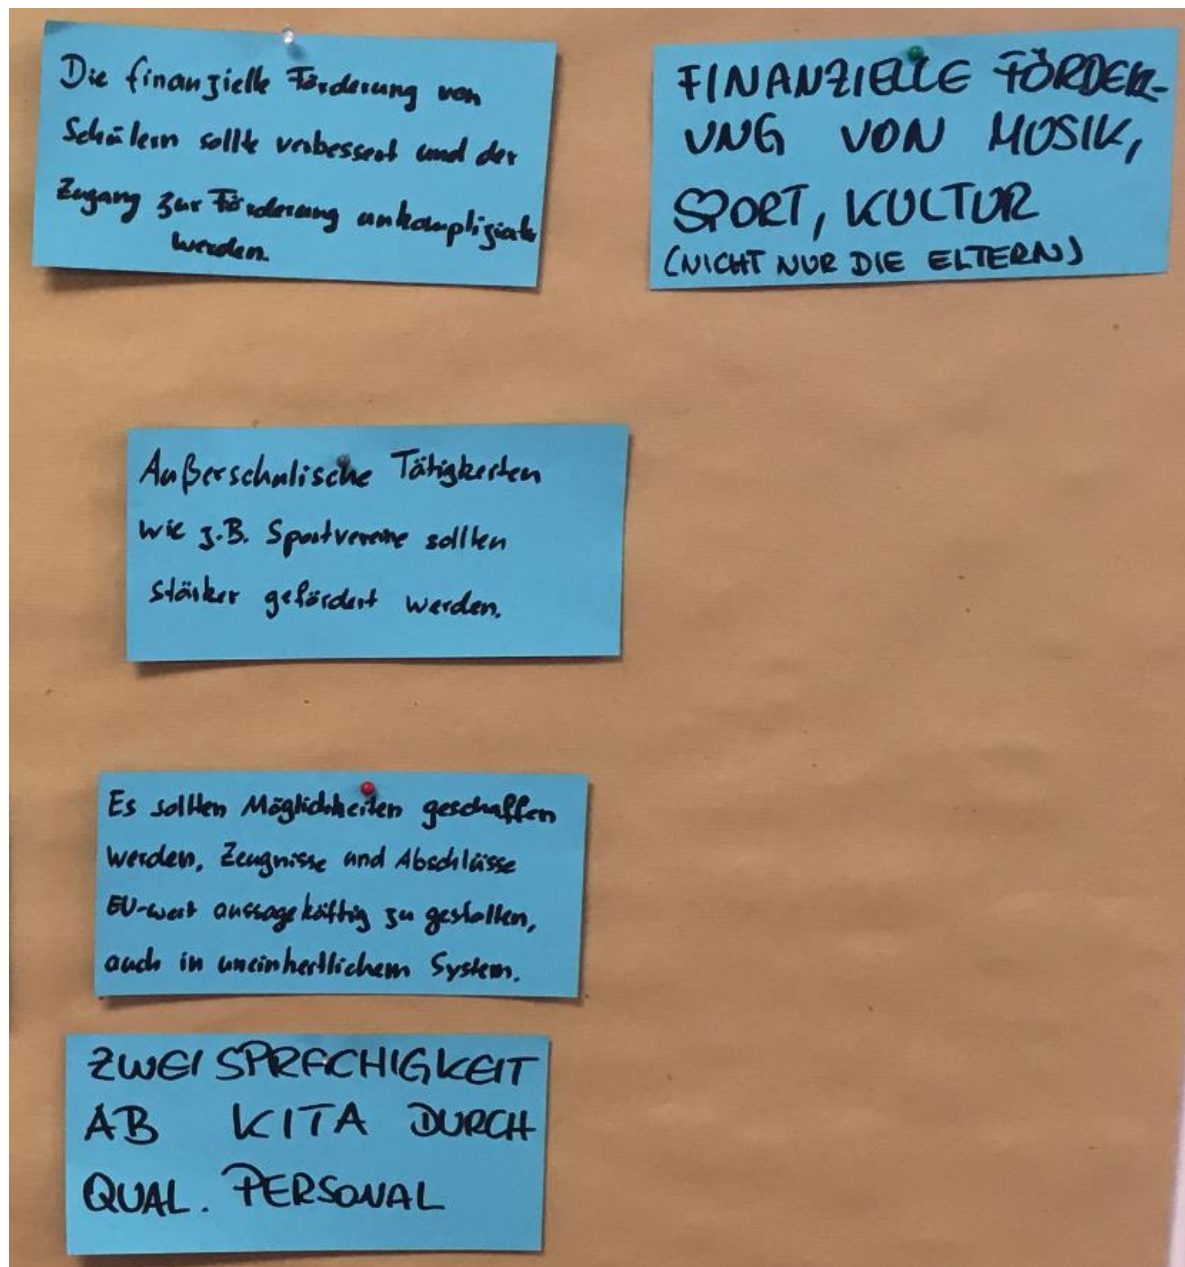 Die finanzielle Förderung von
Schülern sollte verbessert und der
Zugang zur Förderung unkomplizierter
werden.
FINANZIELLE FÖRDER-
UNG VON MUSIK,
SPORT, KULTUR
(NICHT NUR DIE ELTERN)
Außerschulische Tätigkeiten
wie z.B. Sportvereine sollten
stärker gefördert werden.
Es sollten Möglichkeiten geschaffen
werden, Zeugnisse und Abschlüsse
EU-weit aussagekäftig zu gestalten,
auch in uneinheitlichem System.
ZWEISPRACHIGKEIT
AB KITA DURCH
QUAL. PERSONAL